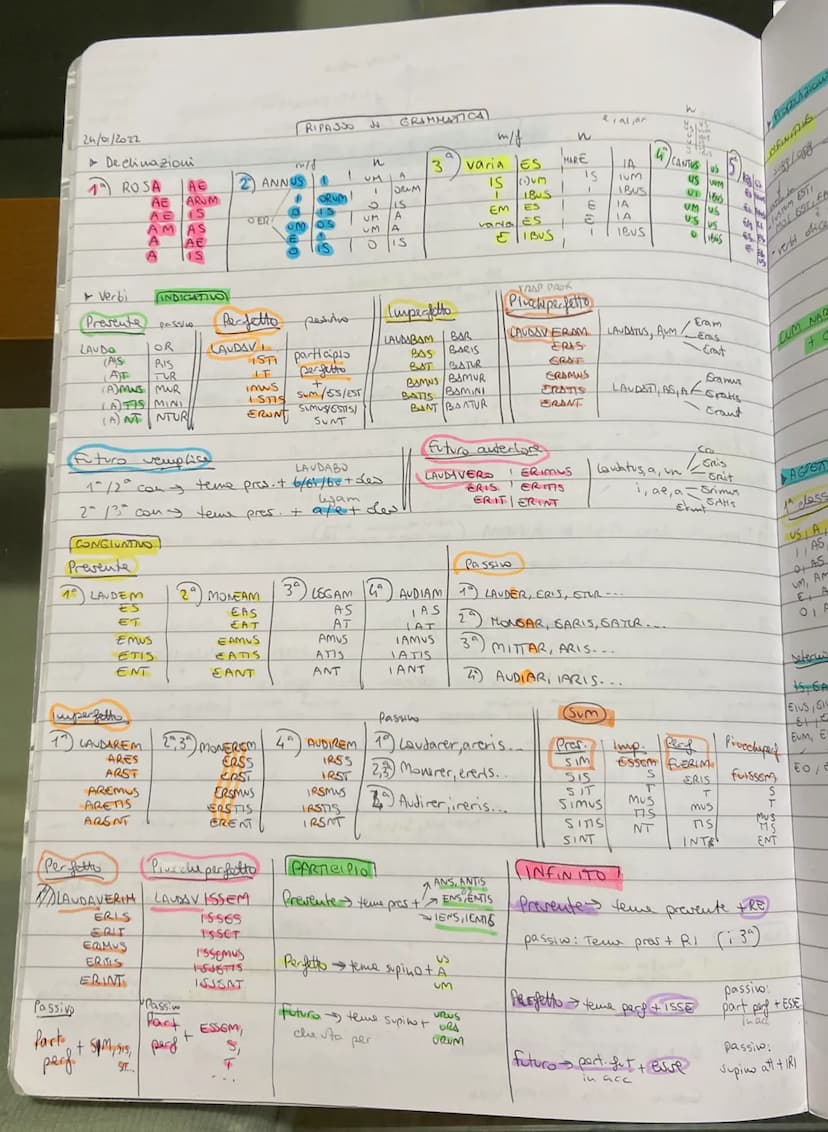 RIPASSO di GRAMMATICA
24/01/2022
► Declinazioni
1ª ROSA AE
AE ARUM
AE IS
AM AS
A AE
A IS
m/f n
2ª ANNUS I UM A
I ORUM I ORUM
O IS O IS
UM OS UM A
E I UM A
O IS O IS
OER
m/f n e, al, ar
3ª varia ES MARE IA
IS (I)UM IS IUM
I IBUS I IBUS
EM ES E IA
varia ES E IA
E IBUS I IBUS
n
4ª CANTUS US
US UUM
UI IBUS
UM US
US US
U IBUS
5ª
► Verbi INDICATIVO
Presente passivo
LAUDO OR
(A)S RIS
(A)T TUR
(A)MUS MUR
(A)TIS MINI
(A)NT NTUR
Perfetto passivo
LAUDAVI
ISTI participio
IT perfetto
IMUS +
ISTIS SUM/ES/EST
ERUNT SIMUS/ESTIS/
SUNT
Imperfetto
LAUDABAM BAR
BAS BARIS
BAT BATUR
BAMUS BAMUR
BATIS BAMINI
BANT BANTUR
Piuccheperfetto
LAUDAVERAM LAUDATUS, A, UM Eram
ERAS Eras
ERAT Erat
ERAMUS Eramus
ERATIS LAUDATI, AE, A Eratis
ERANT Erant
Futuro semplice
LAUDABO
1ª/2ª con → tema pres. + b/bi/bu + des
legam
2ª/3ª con → tema pres. + a/e + des
Futuro anteriore
LAUDAVERO ERIMUS laudatus, a, um ero
ERIS ERITIS eris
ERIT ERINT erit
i, ae, a erimus
eritis
erunt
CONGIUNTIVO
Presente
1ª LAUDEM 2ª MONEAM 3ª LEGAM 4ª AUDIAM
ES EAS AS IAS
ET EAT AT IAT
EMUS EAMUS AMUS IAMUS
ETIS EATIS ATIS IATIS
ENT EANT ANT IANT
Passivo
1ª LAUDER, ERIS, ETUR...
2ª MONEAR, EARIS, EATUR...
3ª MITTAR, ARIS...
4ª AUDIAR, IARIS...
Imperfetto
1ª LAUDAREM 2ª,3ª MONEREM 4ª AUDIREM
ARES ERES IRES
ARET ERET IRET
AREMUS EREMUS IREMUS
ARETIS ERETIS IRETIS
ARENT ERENT IRENT
Passivo
1ª Laudarer, areris...
2,3ª Monerer, ereris...
4ª Audirer, ireris...
SUM
Pres. Imp. Perf Piuccheperf
SIM ESSEM FUERIM FUISSEM
SIS S ERIS S
SIT T T T
SIMUS MUS MUS MUS
SITIS TIS TIS TIS
SINT NT INT ENT
Perfetto
LAUDAVERIM
ERIS
ERIT
ERIMUS
ERITIS
ERINT
Passivo
Part perf + SIM, SIS, SIT...
Piuccheperfetto
LAUDAVISSEM
ISSES
ISSET
ISSEMUS
ISSETIS
ISSENT
Passivo
Part perf + ESSEM,
S,
T
...
PARTICIPIO
Presente → tema pres + ANS, ANTIS
ENS, ENTIS
IENS, IENTIS
Perfetto → tema supino + US
A
UM
Futuro → tema supino + URUS
che sta per URA
URUM
INFINITO
Presente → tema presente + RE
passivo: Tema pres + RI (i 3ª)
Perfetto → tema perf + ISSE
passivo:
part perf + ESSE
in acc
Futuro → part. fut + esse
in acc
passivo:
supino att + IRI